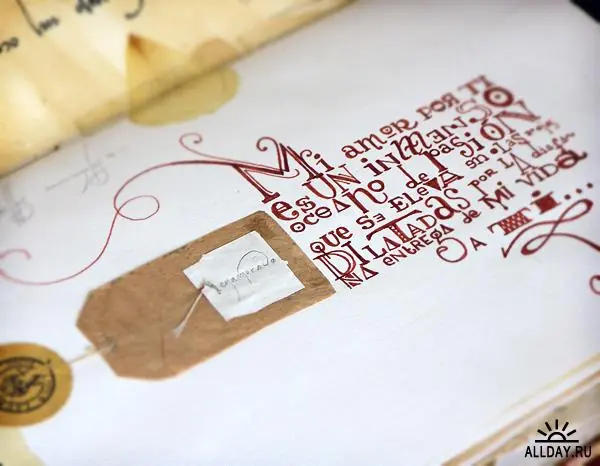 Mi AMOR POR TI
es UN INMENSO
OCEANO de PASIÓN
QUE SE ELEVA en las
DILATADAS POR LA
NA entrega de Mi VIDA
A TI...
enamorada
ALLDAY.RU